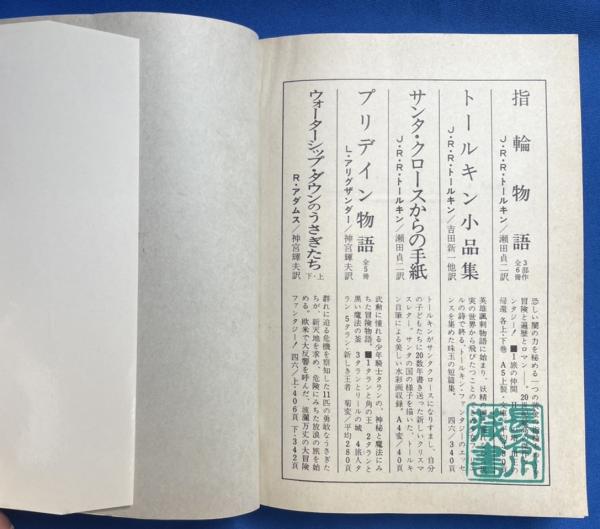 指輪物語 3部作 全6冊
J・R・R・トールキン/瀬田貞二訳
恐しい闇の力を秘める一つの
冒険と遍歴とロマン──。20
ンタジー! ■1旅の仲間 II
帰還 各上・下巻 A5上製・
トールキン小品集
J・R・R・トールキン/吉田新一他訳
英雄諷刺物語に始まり、妖精
実の世界から飛びたつことの
ルの詩で終る、トールキン・ファンタジーのエッセ
ンスを集めた珠玉の短篇集。 四六/340頁
サンタ・クロースからの手紙
J・R・R・トールキン/瀬田貞二訳
トールキンがサンタクロースになりすまし、自分
の子どもたちに20数年書き送った新しいクリスマ
スレター。サンタの国の様子を描いた、トールキ
ン自筆による美しい水彩画収録。 A4変/40頁
プリデイン物語 全5冊
L・アリグザンダー/神宮輝夫訳
武勲に憧れる少年騎士タランの、神秘と魔法にみ
ちた冒険物語。■1タランと角の王 2タランと
黒い魔法の釜 3タランとリールの城 4旅人タ
ラン 5タラン・新しき王者 菊変/平均280頁
ウォーターシップ・ダウンのうさぎたち 上・下
R・アダムス/神宮輝夫訳
群れに迫る危機を察知した11匹の勇敢なうさぎた
ちが、新天地を求め、危険にみちた放浪の旅を始
める。欧米で大反響を呼んだ、波瀾万丈の大冒険
ファンタジー! 四六/上・406頁 下・342頁
長谷川
蔵書